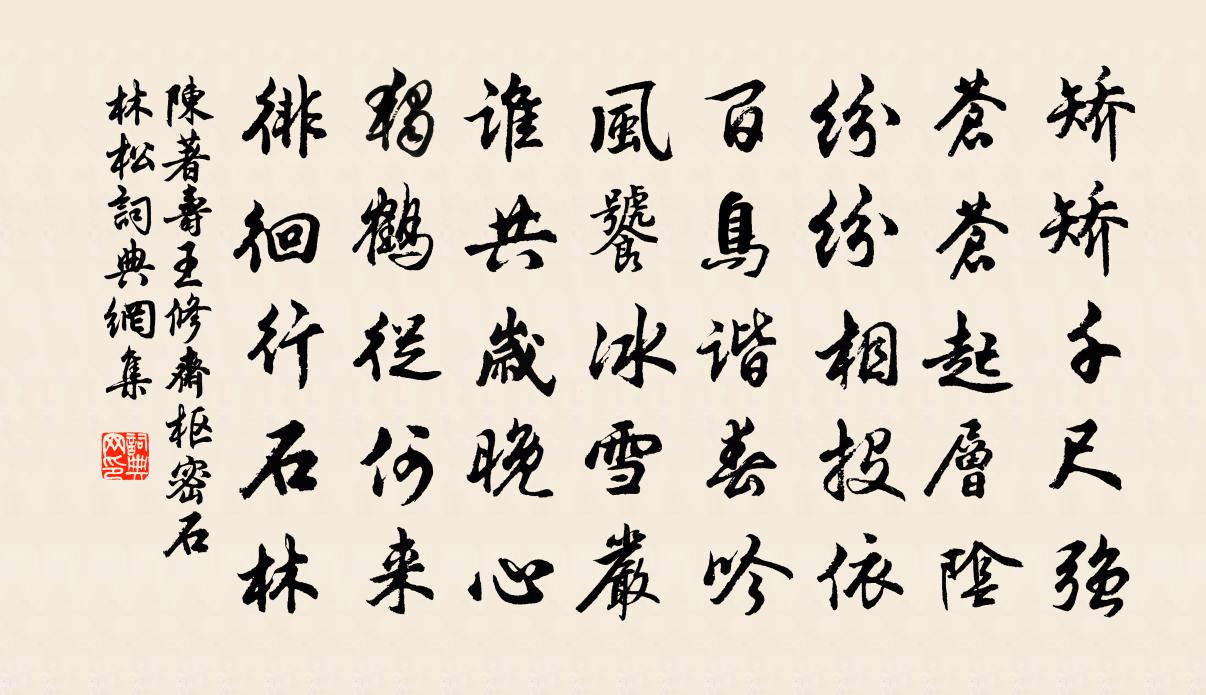 矯矯千尺強
蒼蒼起層陰
紛紛相投依
百鳥諧春吟
風饕冰雪嚴
誰共歲晚心
獨鶴從何来
徘徊行石林
陳著壽王修齋枢密石
林松詞典網集
詞典网印